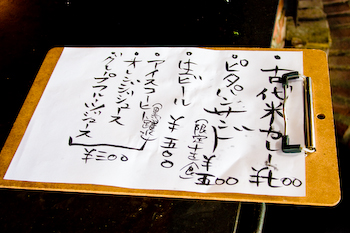 ・古代米カレー ¥七00
・ピタパンサンド (限定十食) ¥五00
・生ビール ¥五00
・アイスコーヒー
・オレンジジュース
・グレープフルーツジュース
¥三00